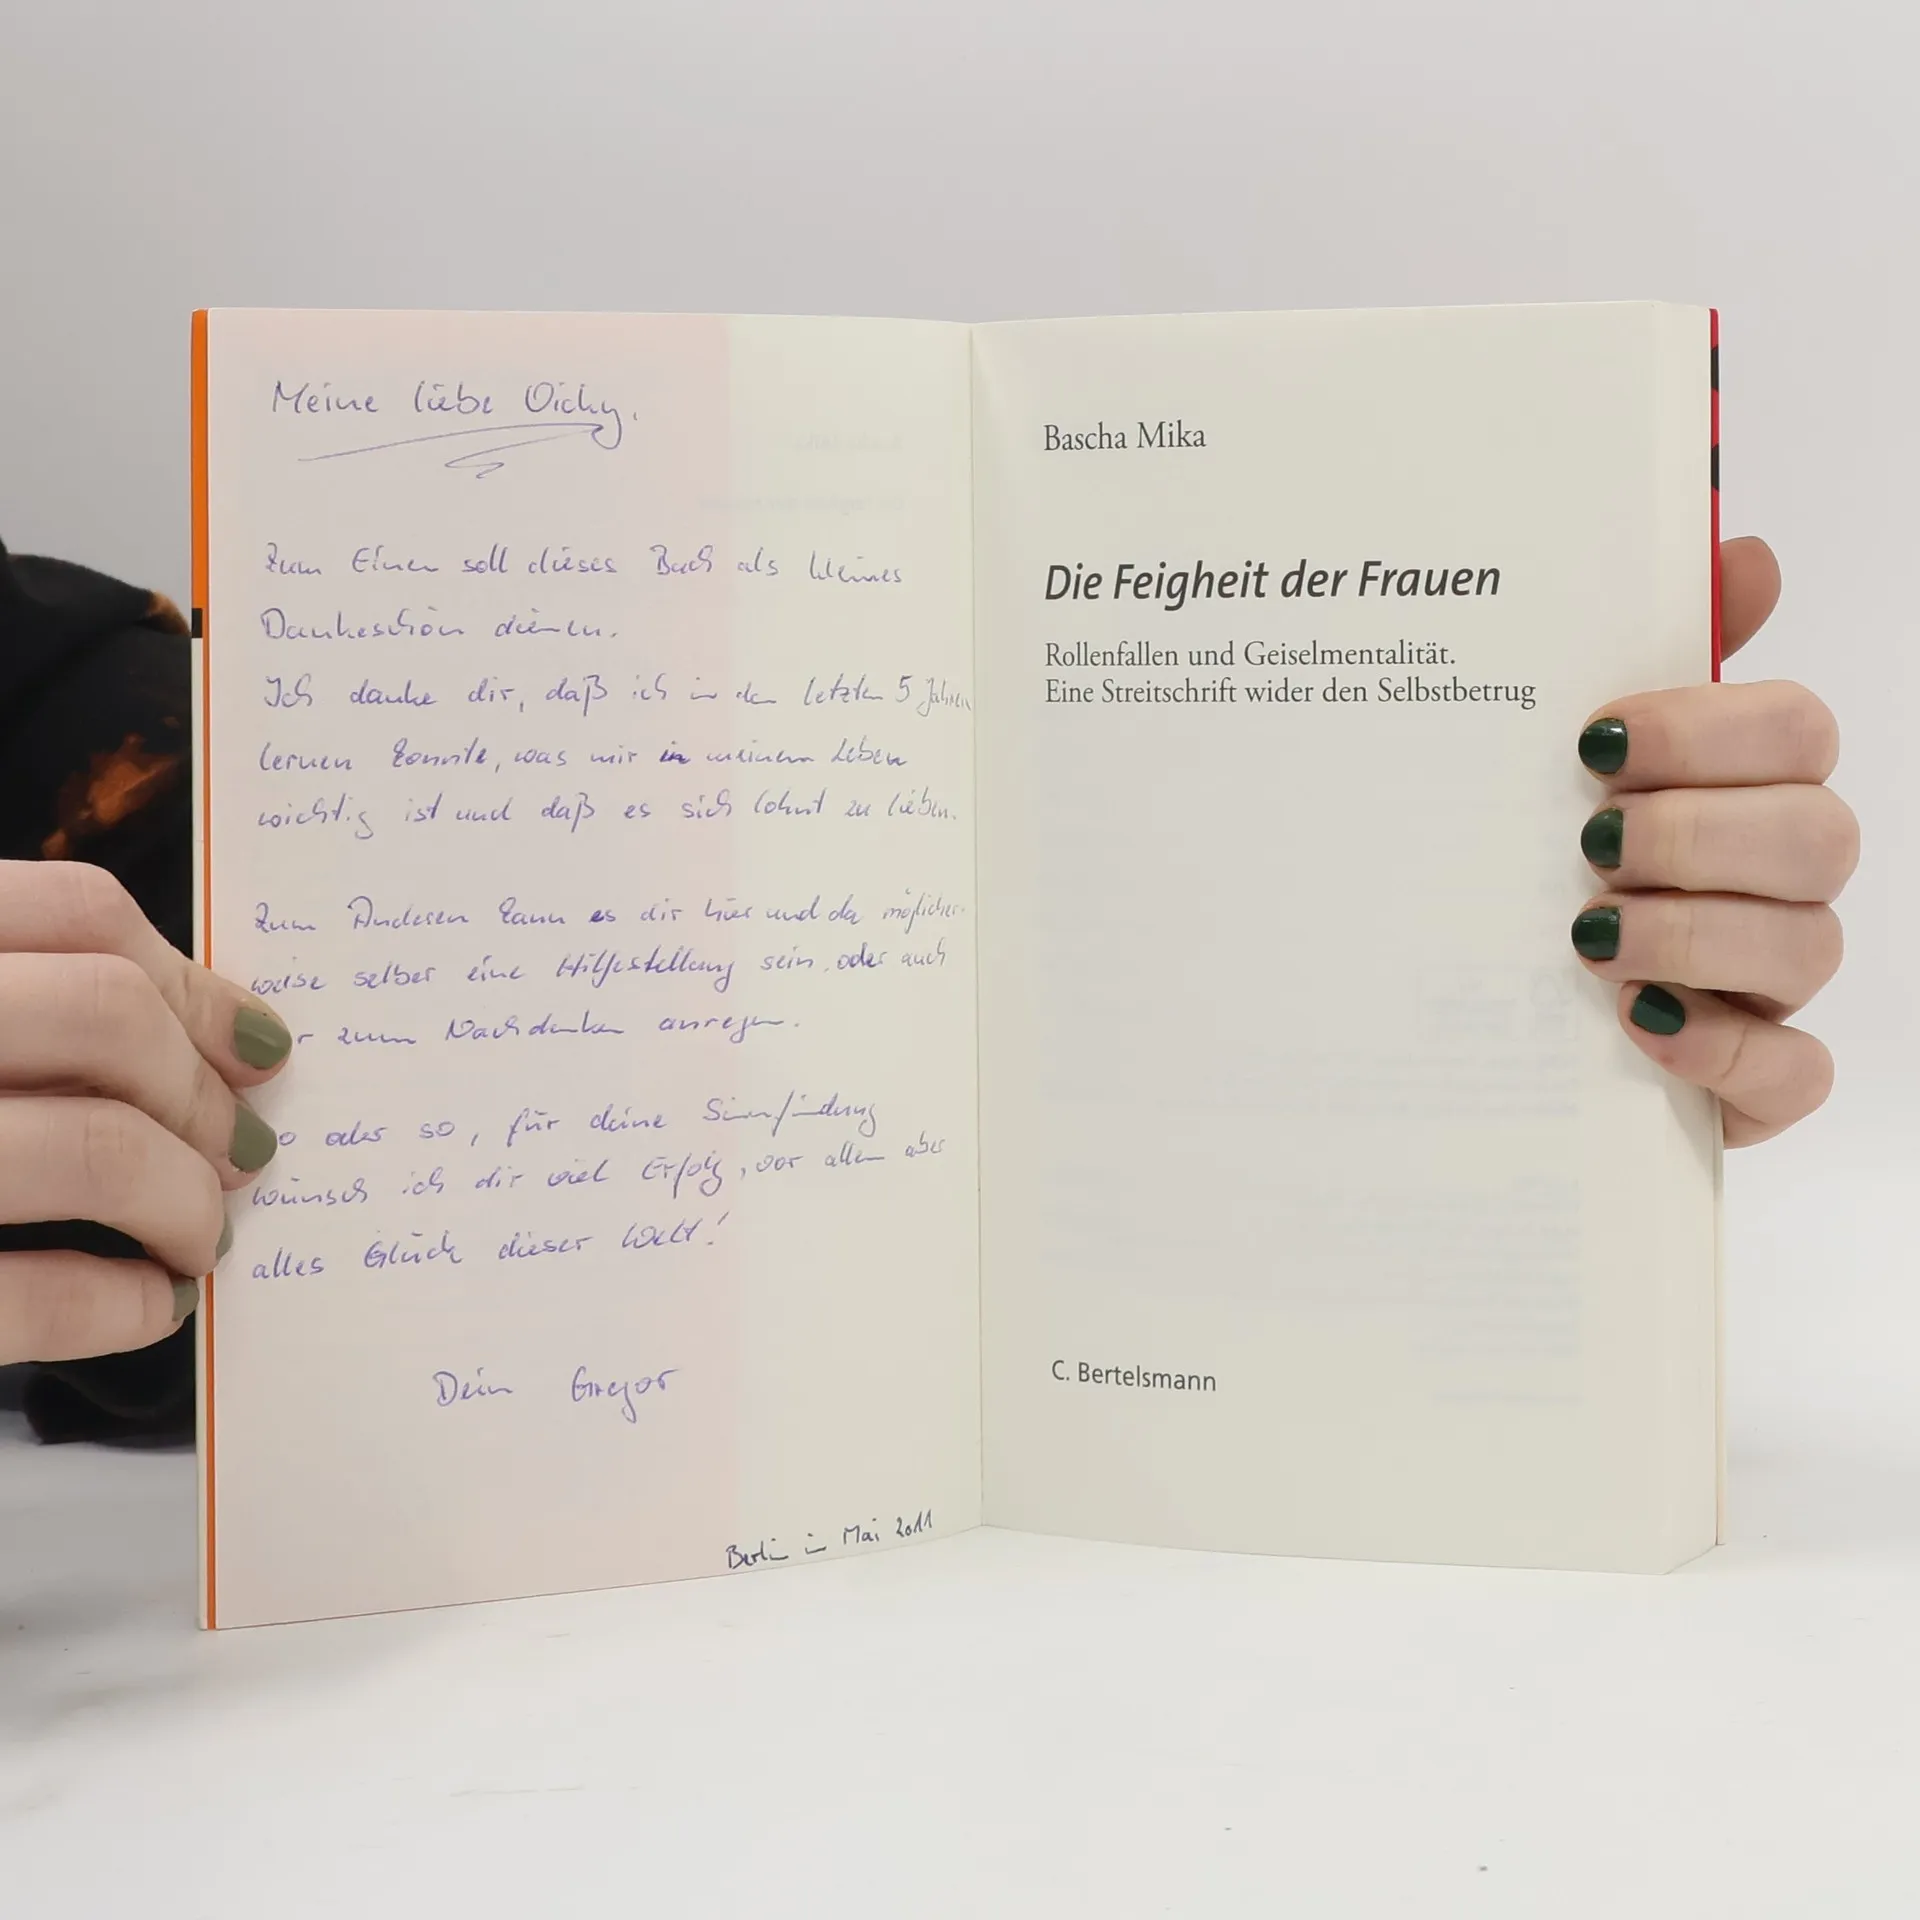 Meine liebe Vicky,
Zum Einen soll dieses Buch als kleines
Dankeschön dienen.
Ich danke dir, daß ich in den letzten 5 Jahren
lernen konnte, was mir in meinem Leben
wichtig ist und daß es sich lohnt zu lieben.
Zum Anderen kann es dir hier und da möglicher-
weise selber eine Hilfestellung sein, oder auch
r zum Nachdenken anregen.
o oder so, für deine Sinnfindung
wünsch ich dir viel Erfolg, vor allem aber
alles Glück dieser Welt!
Dein Gregor
Berlin im Mai 2011
Bascha Mika
Die Feigheit der Frauen
Rollenfallen und Geiselmentalität.
Eine Streitschrift wider den Selbstbetrug
C. Bertelsmann